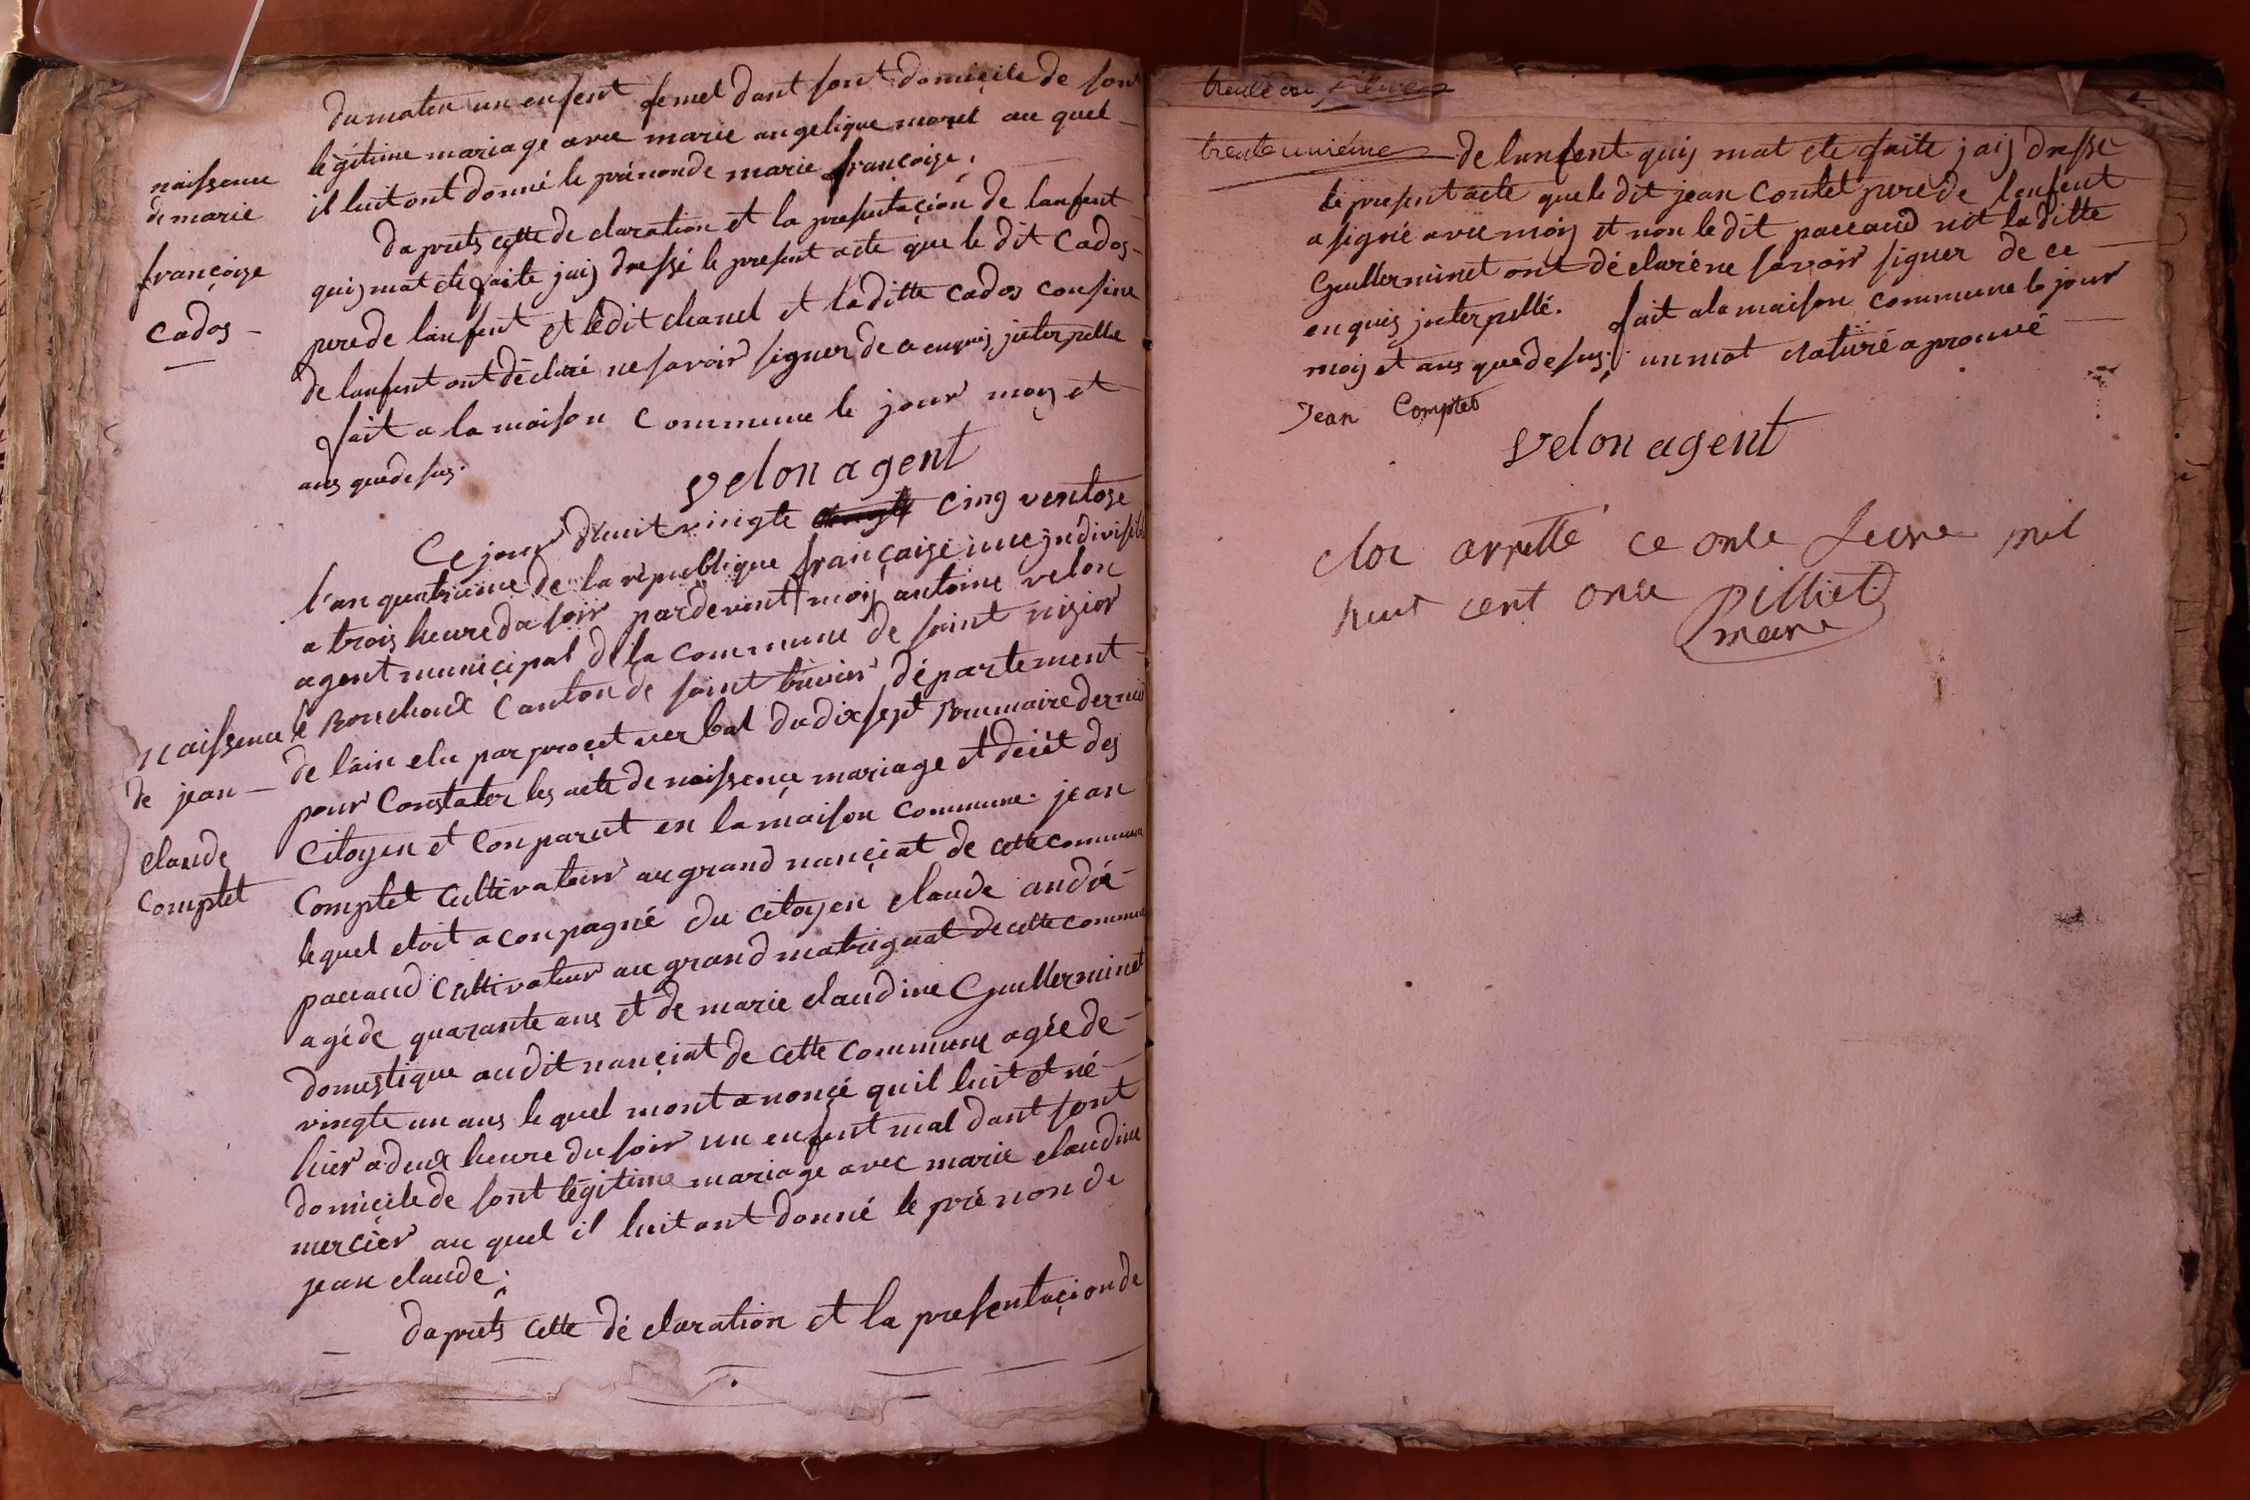 du matin un enfent femel dant sont domiçile de sont
légitime mariage avec marie angelique morel au quel
il luit ont donné le prénon de marie françoise.
naissence
de marie
françoise
Cados
daprets cette de claration et la presentaçion de lanfent
quij mat ete faite jaij dressé le present acte que le dit Cados
pere de lanfent et ledit chanel et la ditte cados cousine
de lanfent ont déclaré ne savoir signer de ce enquis jnterpellée
fait a la maison Commune le jour moy et
ans que desus.
velon agent
Ce jour d'huit vingte cinq ventose
l'an quatrieme de la république française une jndivisible
a trois heure du soir pardevent moij antoine velon
agent muniçipal de la commune de saint nizior
le Bouchoux Canton de saint trivier département
de lain elu par proçet verbal du dix sept Brumaire dernier
pour Constater les acte de naissençe mariage et décét des
Citoyen et Conparut en la maison Commune jean
Comptet Cultivateur au grand nançiat de cette commune
lequel etoit aconpagné du citoyen claude andré
paccaud Cultivateur au grand matrignat de cette commune
agé de quarante ans et de marie claudine Guillerminet
domestique audit nançiat de cette commune agée de
vingte un ans lequel mont anoncé quil luit et né
hier a deux heure du soir un enfent mal dant sont
domiçile de sont légitime mariage avec marie claudine
mercier au quel il luit ont donné le prénon de
jean claude.
Naissence
de jean
claude
Comptet
daprets cette dé claration et la presentaçion de
trente unième
de lanfent quij mat ete faite jaij dressé
le present acte que le dit jean Contet pere de lenfent
a signé avec moij et non le dit paccaud nit la ditte
Guillerminet ont déclaré ne savoir signer de ce
enquis jnterpellé. fait a la maison commune le jour
moij et ans que desus. un mot raturé aprouvé
Jean Comptet
velon agent
cloc arretté ce onze mil
huit cent onze Pilliet
maire